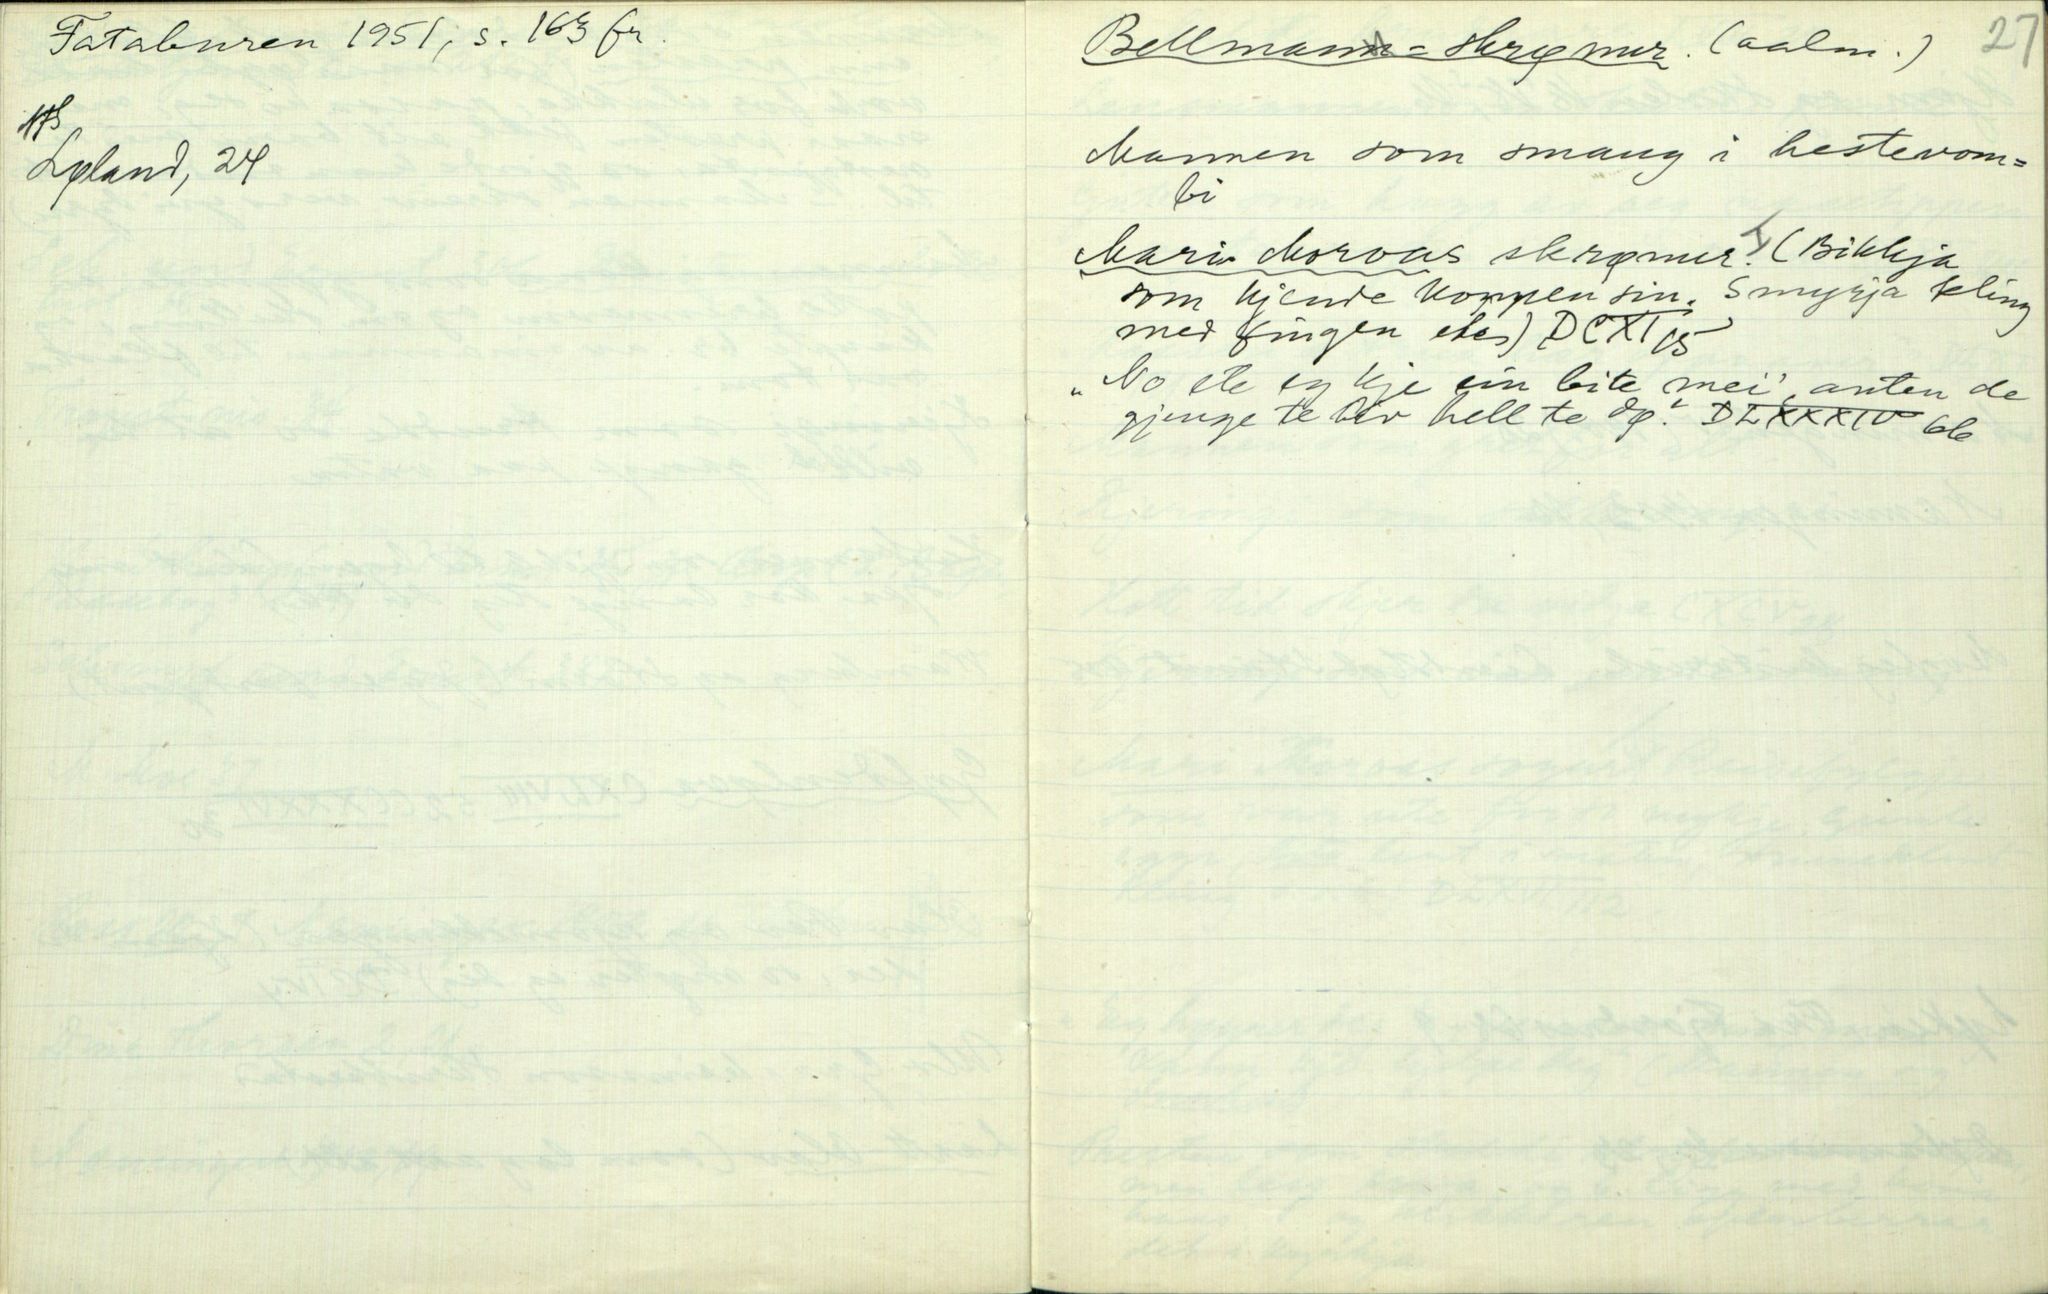 Fataburen 1951, s. 163 fr.
NFS
Løland, 24
27
Bellmann-skrømur. (aalm.)
Mannen som smaug i hestevom=
bi
Mari Moroas skrømur. (Bikkja
som kjende koppen sin. Smyrja kling
med fingen etc) DCXI 15
"No ete eg kje ein bite mei', anten de
gjenge te liv hell te dø". DLXXXIV 66